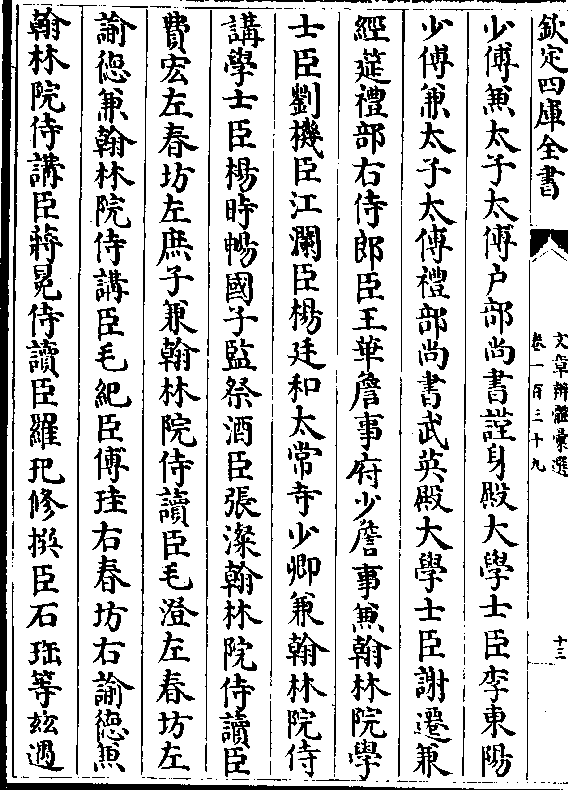 欽定四庫全書
文章辨體彙選
卷一百三十九
十三
少傅兼太子太傅户部尚書謹身殿大學士臣李東陽
少傅兼太子太傅禮部尚書武英殿大學士臣謝遷兼
經筵禮部右侍郎臣王華詹事府少詹事兼翰林院學
士臣劉機臣江瀾臣楊廷和太常寺少卿兼翰林院侍
講學士臣楊時暢國子監祭酒臣張澯翰林院侍讀臣
費宏左春坊左庶子兼翰林院侍讀臣毛澄左春坊左
諭德兼翰林院侍講臣毛紀臣傅珪右春坊右諭德兼
翰林院侍講臣蔣冕侍讀臣羅玘修撰臣石珤等玆遇